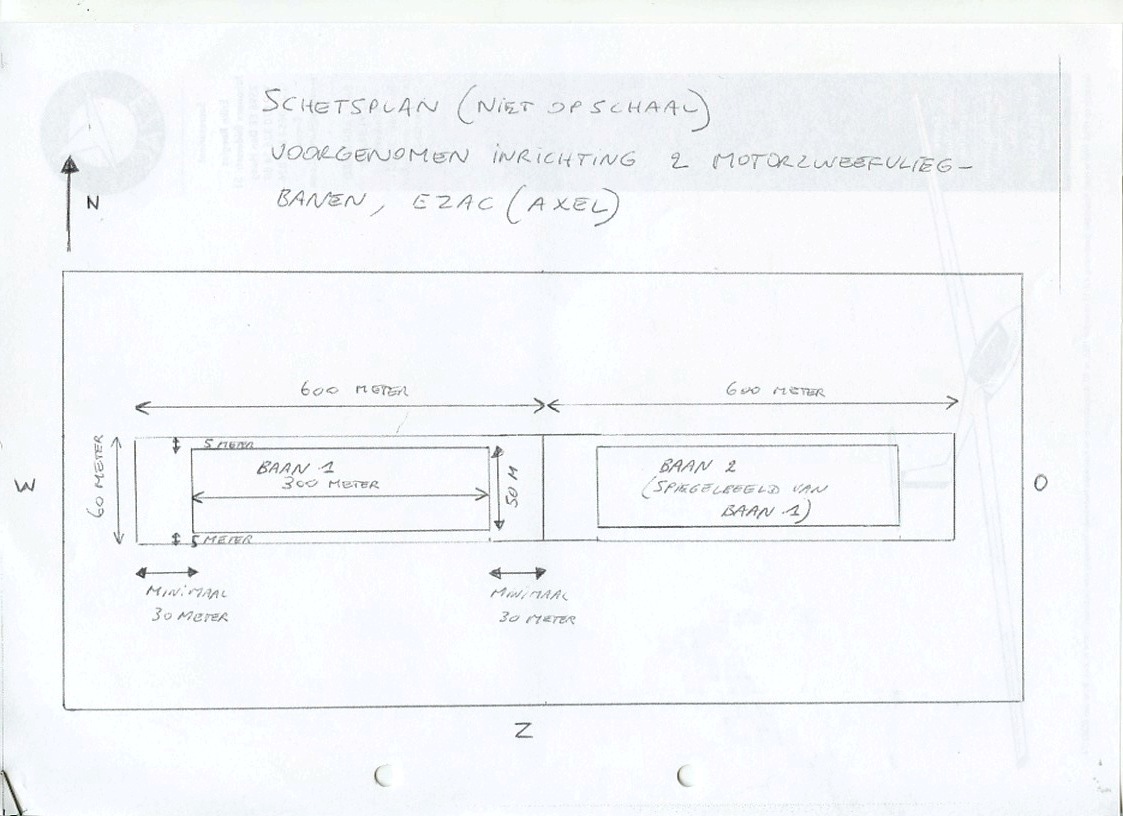 SCHETSPLAN (NIET OP SCHAAL)
VOORGENOMEN INRICHTING 2 MOTORZWEEFVLIEG-
BANEN, EZAC (AXEL)
N
600 METER
600 METER
60 METER
5 METER
BAAN 1
300 METER
50 M
5 METER
BAAN 2
(SPIEGELBEELD VAN
BAAN 1)
W
O
MINIMAAL
30 METER
MINIMAAL
30 METER
Z